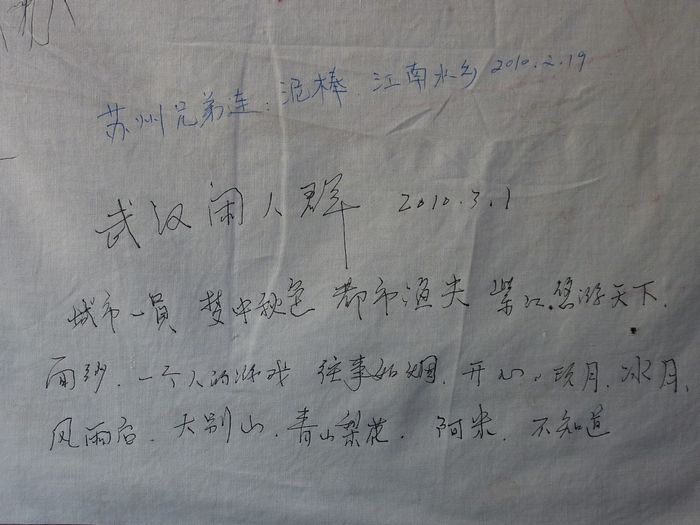 苏州兄弟连：泥棒 江南水乡 2010.2.19
武汉闲人群 2010.3.1
城市一员 梦中秋色 都市渔夫 紫江.悠游天下.
面纱.一个人的游戏 往事如烟.开心.皎月.冰月.
风雨后.大别山.青山梨花.阿米.不知道